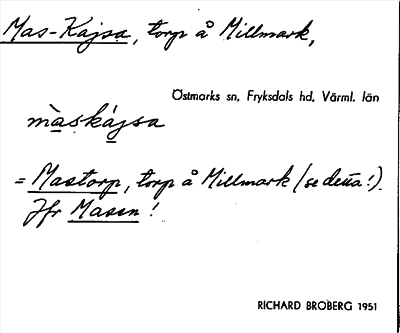 Mas-Kajsa, torp å Millmark,
Östmarks sn, Fryksdals hd, Värml. län
màskájsa
= Mastorp, torp å Millmark (se detta!).
Jfr Masen!
RICHARD BROBERG 1951